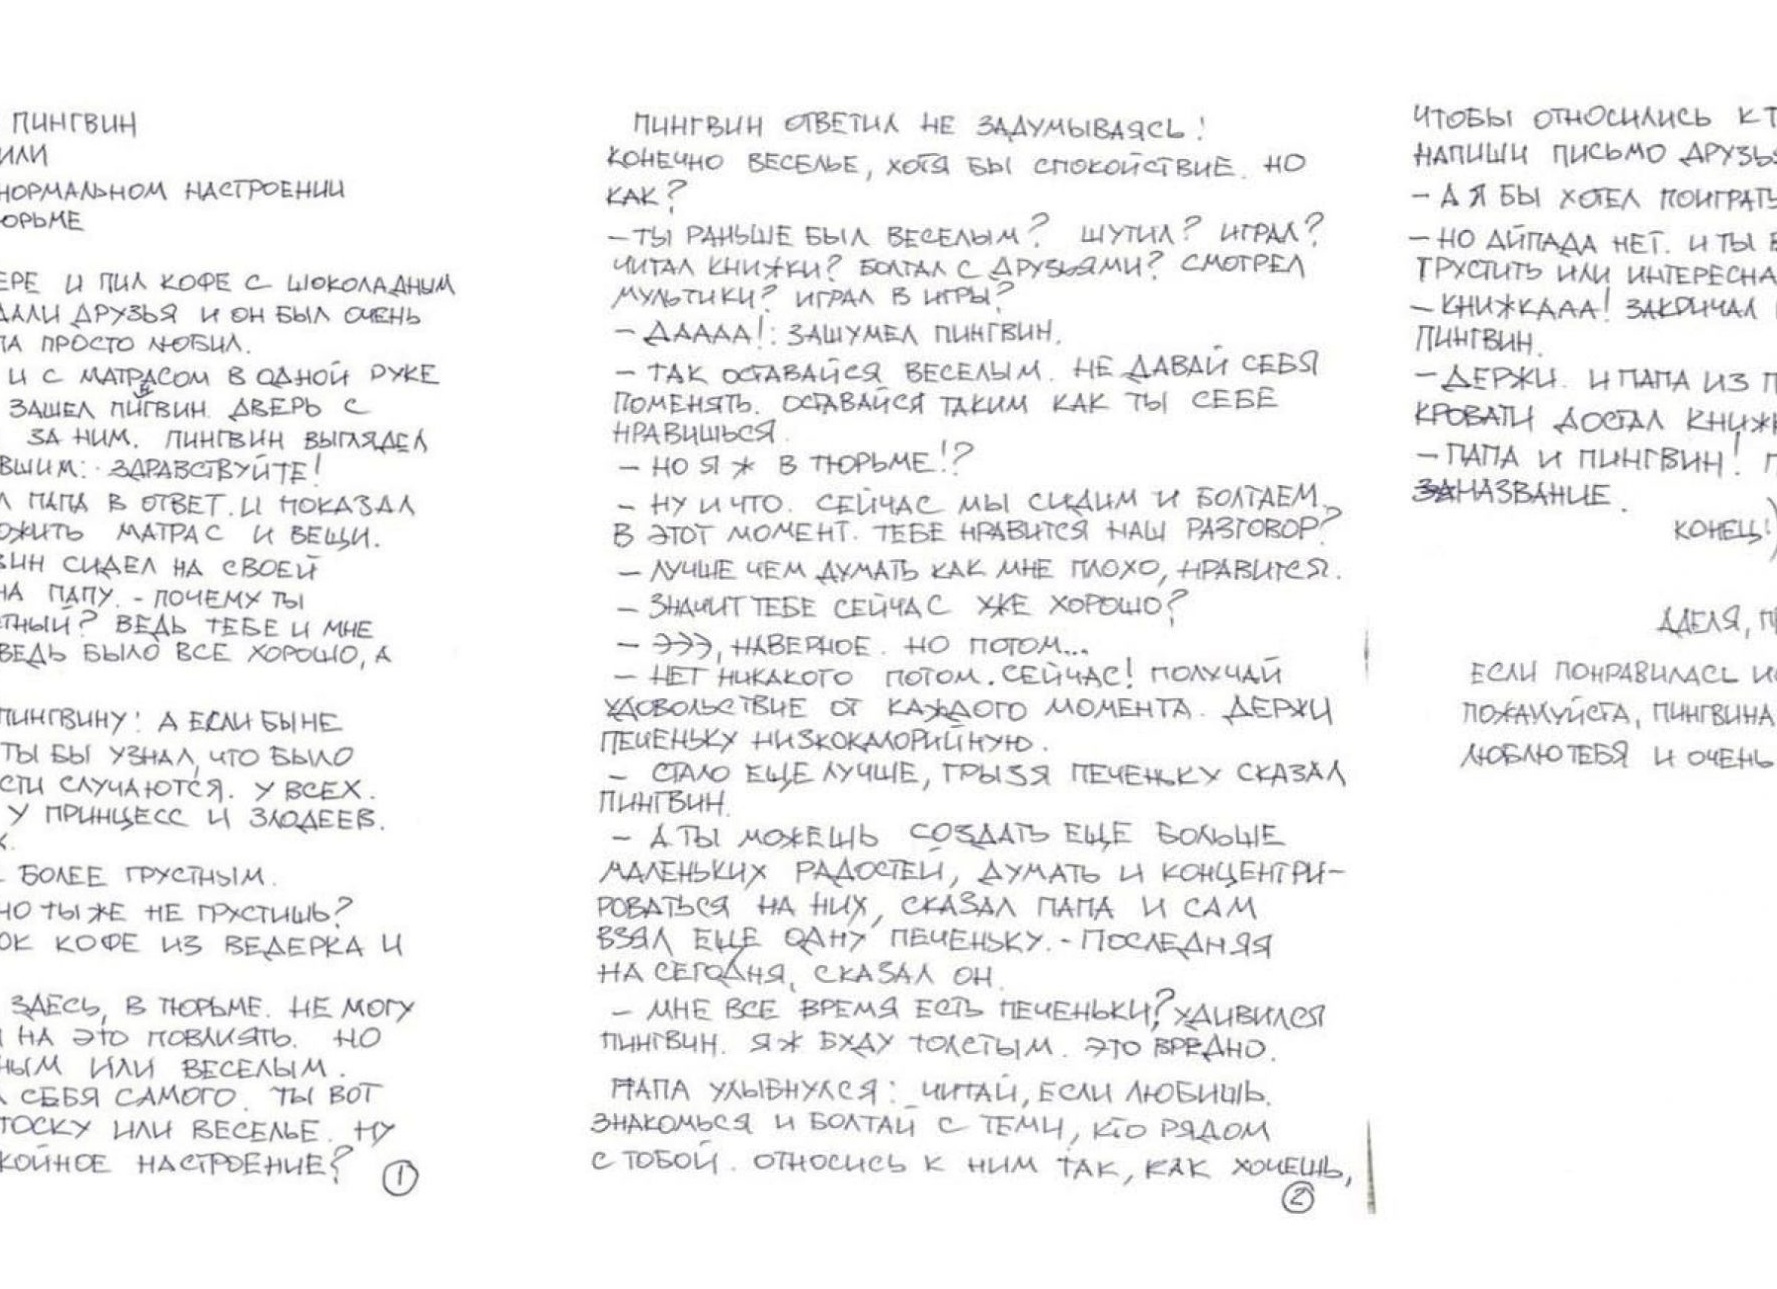 ПИНГВИН
ИЛИ
НОРМАЛЬНОМ НАСТРОЕНИИ
ЮРЬМЕ
ЕРЕ И ПИЛ КОФЕ С ШОКОЛАДНЫМ
ДАЛИ ДРУЗЬЯ И ОН БЫЛ ОЧЕНЬ
ПА ПРОСТО ЛЮБИЛ.
И С МАТРАСОМ В ОДНОЙ РУКЕ
ЗАШЕЛ ПИНГВИН. ДВЕРЬ С
ЗА НИМ. ПИНГВИН ВЫГЛЯДЕЛ
ВШИМ: ЗДРАВСТВУЙТЕ!
Л ПАПА В ОТВЕТ. И ПОКАЗАЛ
ОЖИТЬ МАТРАС И ВЕЩИ.
ВИН СИДЕЛ НА СВОЕЙ
НА ПАПУ. - ПОЧЕМУ ТЫ
ТНЫЙ? ВЕДЬ ТЕБЕ И МНЕ
ВЕДЬ БЫЛО ВСЕ ХОРОШО, А
ПИНГВИНУ: А ЕСЛИ БЫ НЕ
ТЫ БЫ УЗНАЛ, ЧТО БЫЛО
СТИ СЛУЧАЮТСЯ. У ВСЕХ.
У ПРИНЦЕСС И ЗЛОДЕЕВ.
Х.
БОЛЕЕ ГРУСТНЫМ.
НО ТЫ ЖЕ НЕ ГРУСТИШЬ?
ОК КОФЕ ИЗ ВЕДЕРКА И
ЗДЕСЬ, В ТЮРЬМЕ. НЕ МОГУ
НА ЭТО ПОВЛИЯТЬ. НО
НЫМ ИЛИ ВЕСЕЛЫМ.
СЕБЯ САМОГО. ТЫ ВОТ
ТОСКУ ИЛИ ВЕСЕЛЬЕ. НУ
КОЙНОЕ НАСТРОЕНИЕ?
1
ПИНГВИН ОТВЕТИЛ НЕ ЗАДУМЫВАЯСЬ:
КОНЕЧНО ВЕСЕЛЬЕ, ХОТЯ БЫ СПОКОЙСТВИЕ. НО
КАК?
- ТЫ РАНЬШЕ БЫЛ ВЕСЕЛЫМ? ШУТИЛ? ИГРАЛ?
ЧИТАЛ КНИЖКИ? БОЛТАЛ С ДРУЗЬЯМИ? СМОТРЕЛ
МУЛЬТИКИ? ИГРАЛ В ИГРЫ?
- ДАААА!: ЗАШУМЕЛ ПИНГВИН.
- ТАК ОСТАВАЙСЯ ВЕСЕЛЫМ. НЕ ДАВАЙ СЕБЯ
ПОМЕНЯТЬ. ОСТАВАЙСЯ ТАКИМ КАК ТЫ СЕБЕ
НРАВИШЬСЯ.
- НО Я Ж В ТЮРЬМЕ!?
- НУ И ЧТО. СЕЙЧАС МЫ СИДИМ И БОЛТАЕМ.
В ЭТОТ МОМЕНТ. ТЕБЕ НРАВИТСЯ НАШ РАЗГОВОР?
- ЛУЧШЕ ЧЕМ ДУМАТЬ КАК МНЕ ПЛОХО, НРАВИТСЯ.
- ЗНАЧИТ ТЕБЕ СЕЙЧАС УЖЕ ХОРОШО?
- ЭЭЭ, НАВЕРНОЕ. НО ПОТОМ...
- НЕТ НИКАКОГО ПОТОМ. СЕЙЧАС! ПОЛУЧАЙ
УДОВОЛЬСТВИЕ ОТ КАЖДОГО МОМЕНТА. ДЕРЖИ
ПЕЧЕНЬКУ НИЗКОКАЛОРИЙНУЮ.
- СТАЛО ЕЩЕ ЛУЧШЕ, ГРЫЗЯ ПЕЧЕНЬКУ СКАЗАЛ
ПИНГВИН.
- А ТЫ МОЖЕШЬ СОЗДАТЬ ЕЩЕ БОЛЬШЕ
МАЛЕНЬКИХ РАДОСТЕЙ, ДУМАТЬ И КОНЦЕНТРИ-
РОВАТЬСЯ НА НИХ, СКАЗАЛ ПАПА И САМ
ВЗЯЛ ЕЩЕ ОДНУ ПЕЧЕНЬКУ. - ПОСЛЕДНЯЯ
НА СЕГОДНЯ, СКАЗАЛ ОН.
- МНЕ ВСЕ ВРЕМЯ ЕСТЬ ПЕЧЕНЬКИ? УДИВИЛСЯ
ПИНГВИН. Я Ж БУДУ ТОЛСТЫМ. ЭТО ВРЕДНО.
ПАПА УЛЫБНУЛСЯ: ЧИТАЙ, ЕСЛИ ЛЮБИШЬ.
ЗНАКОМЬСЯ И БОЛТАЙ С ТЕМИ, КТО РЯДОМ
С ТОБОЙ. ОТНОСИСЬ К НИМ ТАК, КАК ХОЧЕШЬ,
2
ЧТОБЫ ОТНОСИЛИСЬ К Т
НАПИШИ ПИСЬМО ДРУЗЬЯ
- А Я БЫ ХОТЕЛ ПОИГРАТЬ
- НО АЙПАДА НЕТ. И ТЫ В
ГРУСТИТЬ ИЛИ ИНТЕРЕСНА
- КНИЖКААА! ЗАКРИЧАЛ
ПИНГВИН.
- ДЕРЖИ. И ПАПА ИЗ П
КРОВАТИ ДОСТАЛ КНИЖК
- ПАПА И ПИНГВИН! П
НАЗВАНИЕ.
КОНЕЦ!
АДЕЛЯ, ПР
ЕСЛИ ПОНРАВИЛАСЬ ИС
ПОЖАЛУЙСТА, ПИНГВИНА
ЛЮБЛЮ ТЕБЯ И ОЧЕНЬ